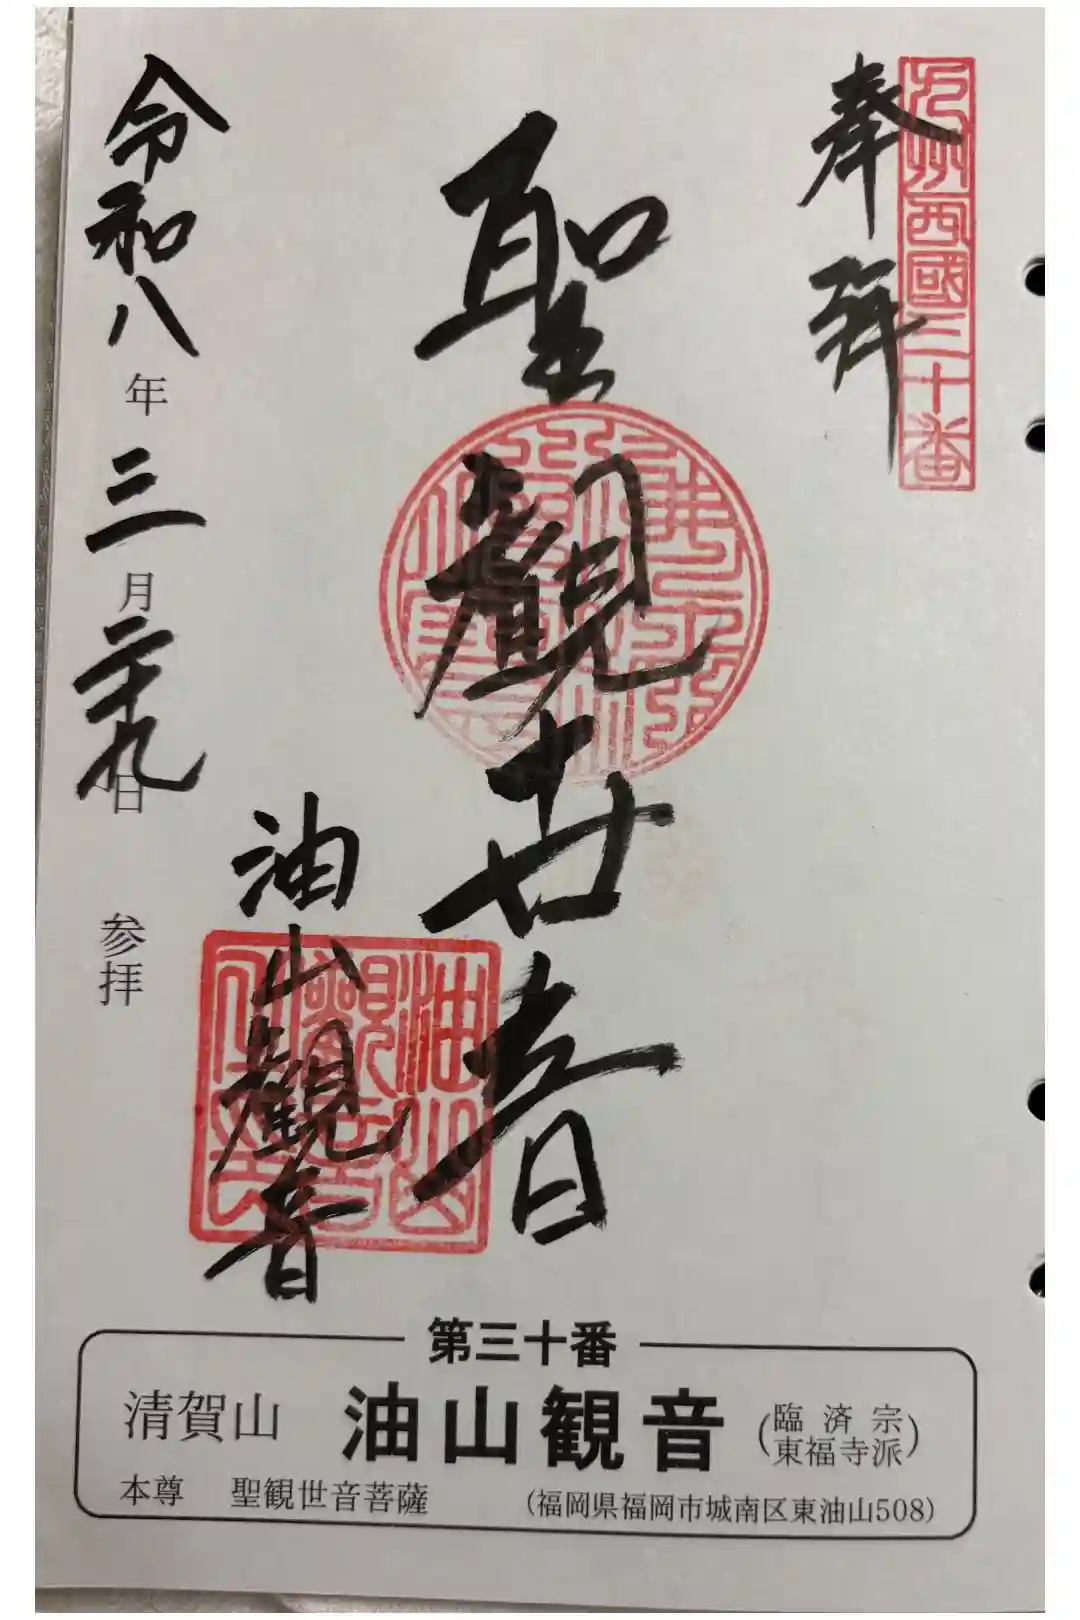 奉拝
九州西國三十番
聖観世音
油山観音
令和八年三月二十九日
参拝
第三十番
清賀山 油山観音 (臨済宗東福寺派)
本尊 聖観世音菩薩 (福岡県福岡市城南区東油山508)